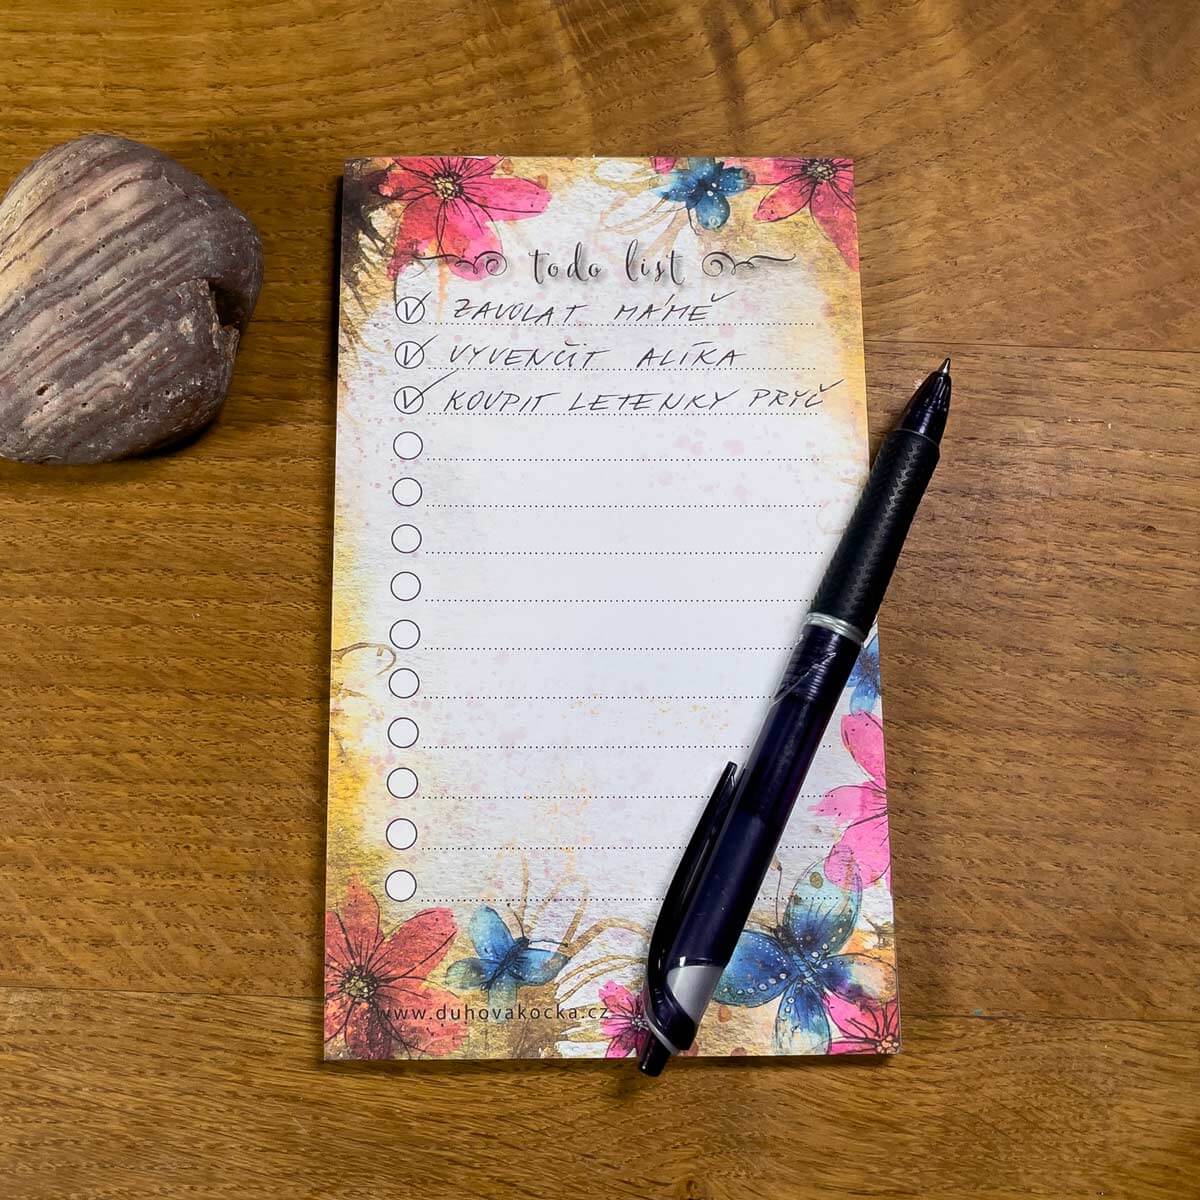 todo list
ZAVOLAT MÁMĚ
VYVENČIT ALÍKA
KOUPIT LETENKY PRYČ
www.duhovakocka.cz